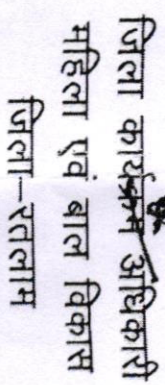 जिला कार्यक्रम अधिकारी
महिला एवं बाल विकास
जिला-रतलाम